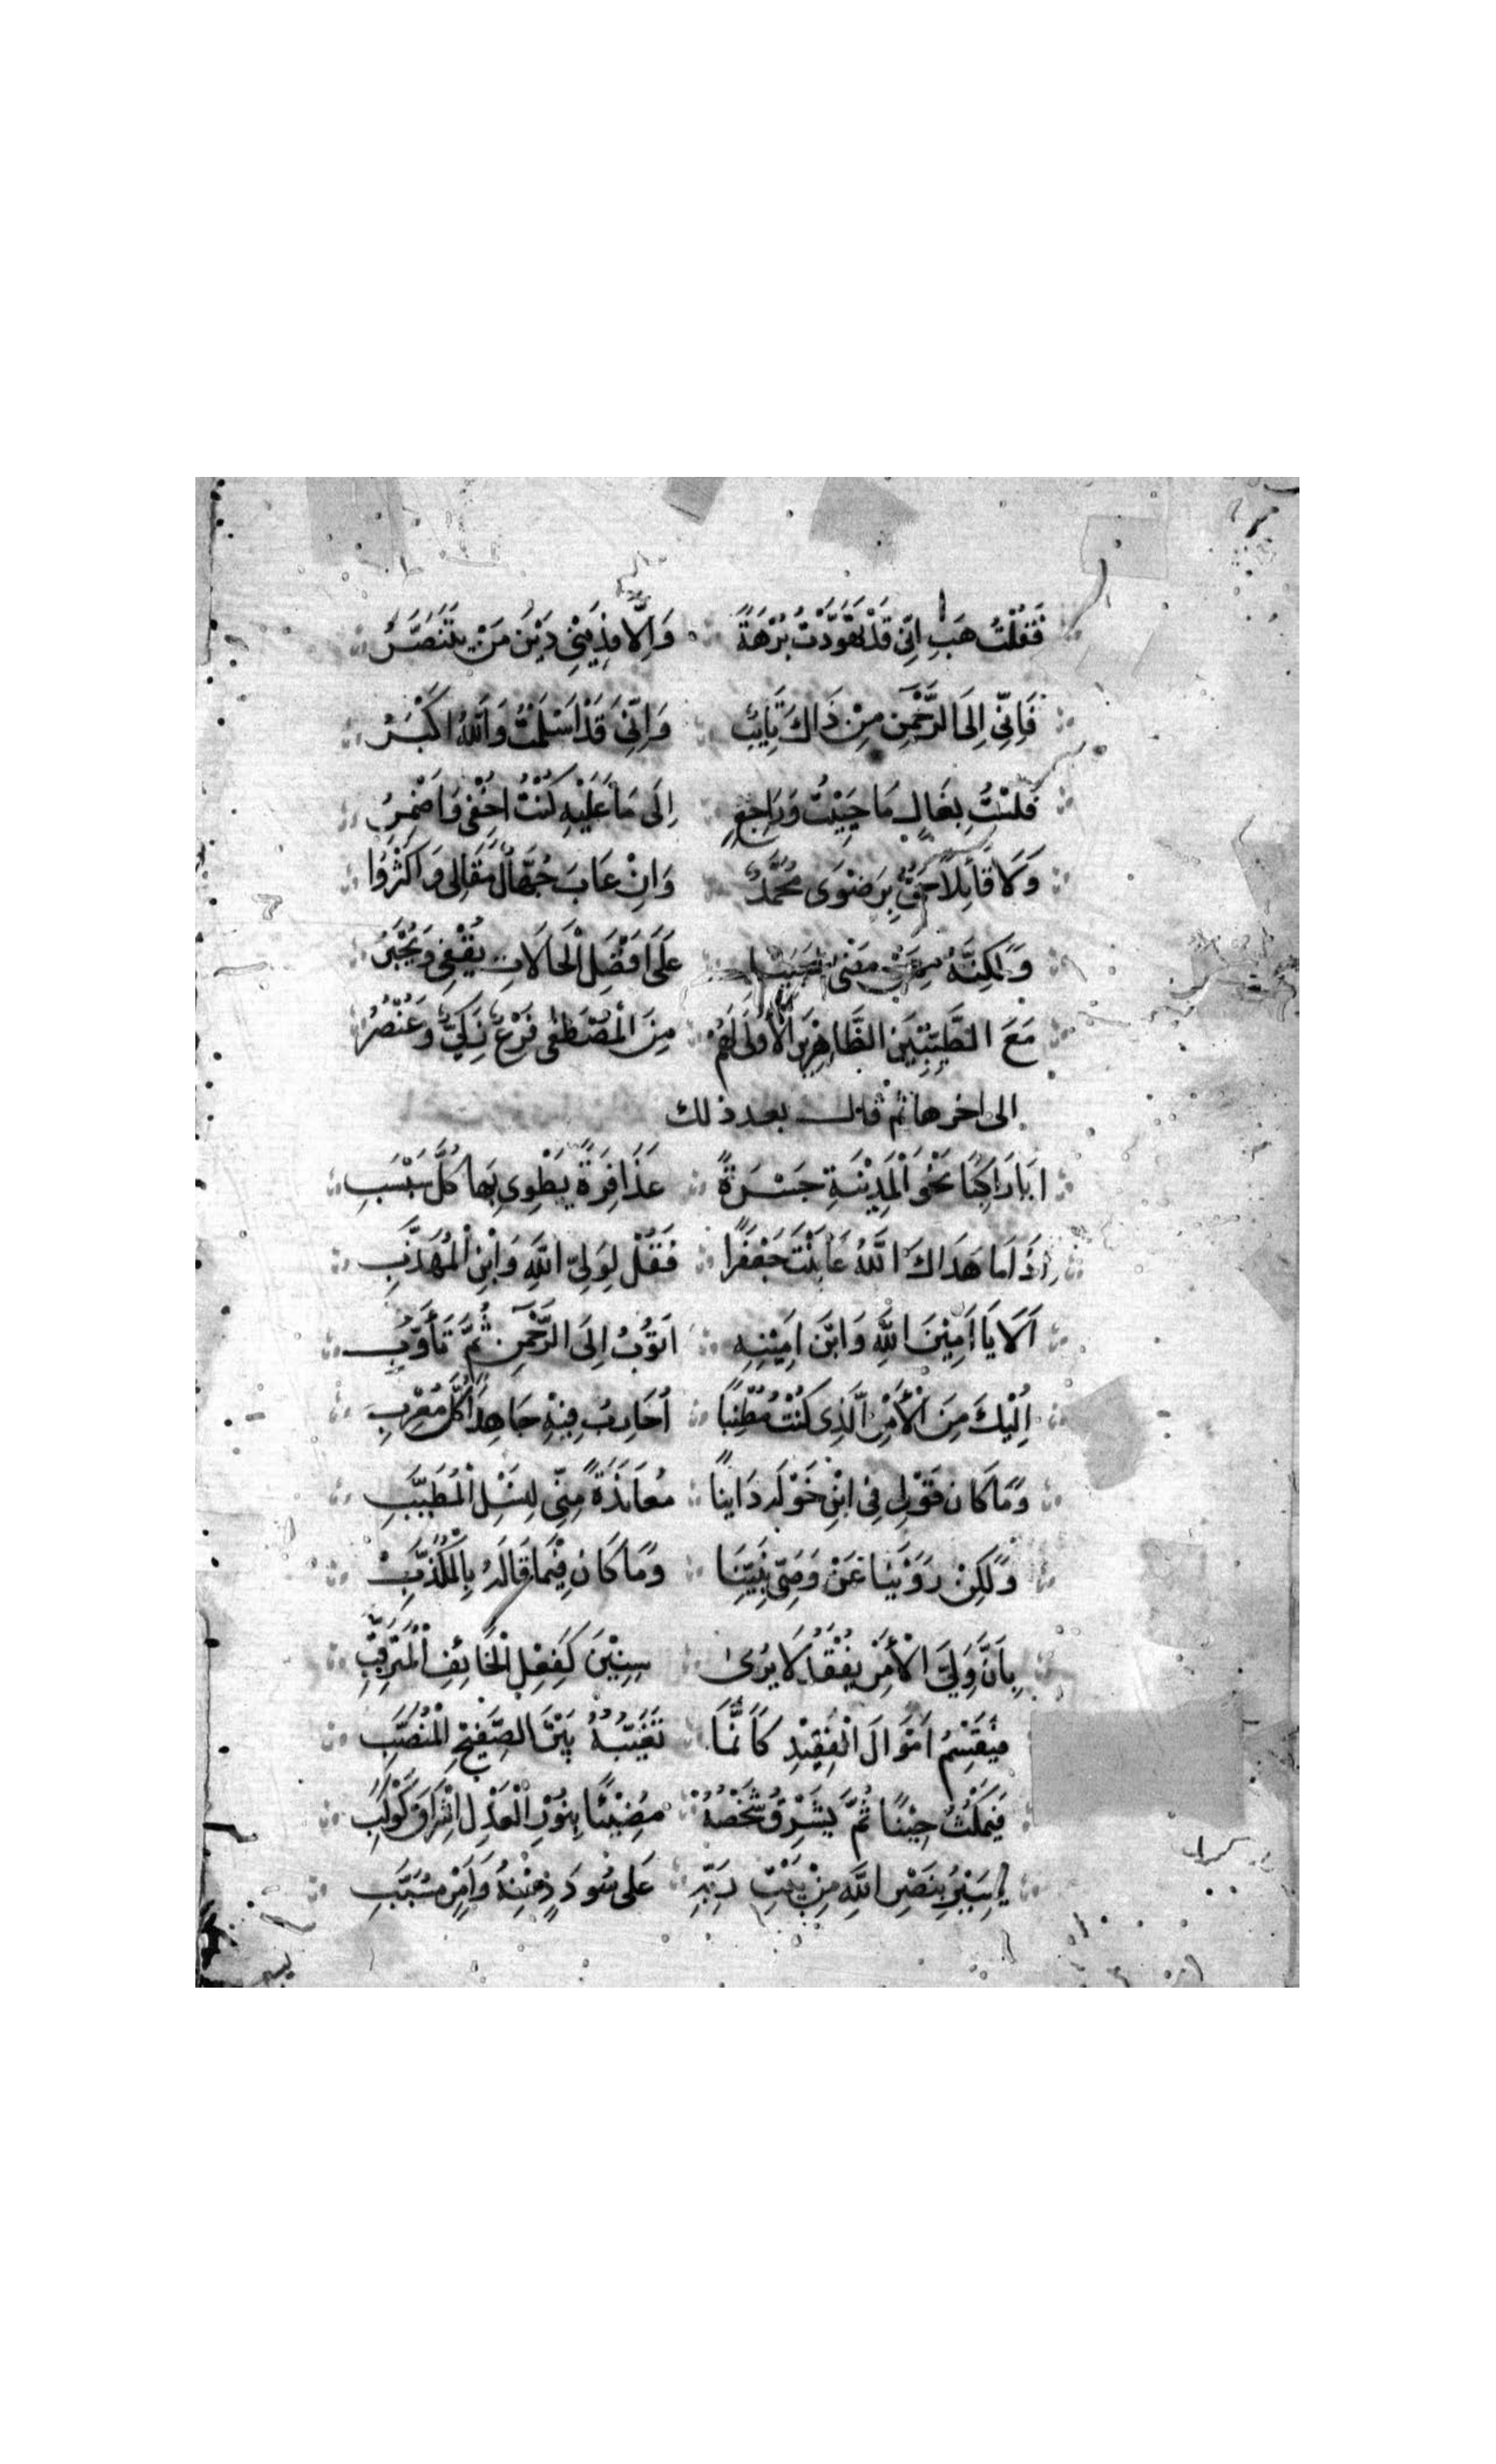 فَقُلْتُ هَبِ اِنِّى قَدْ تَهَوَّدْتُ بُرْهَةً وَاِلَّا فَدِيْنِىْ دِيْنُ مَنْ يَتَنَصَّرُ
فَاِنِّى اِلَى الرَّحْمٰنِ مِنْ ذَاكَ تَايِبٌ وَاِنِّى قَدْ اَسْلَمْتُ وَاللّٰهُ اَكْبَرُ
فَلَسْتُ بِغَالٍ مَا حَيِيْتُ وَرَاجِعٍ اِلَى مَا عَلَيْهِ كُنْتُ اُخْفِى وَاُضْمِرُ
وَلَا قَائِلًا حَىٌّ بِرَضْوَى مُحَمَّدٌ وَاِنْ عَابَ جُهَّالٌ مَقَالِى وَاَكْثَرُوا
وَلٰكِنَّهُ مَضٰى عَلَى اَفْضَلِ الْحَالَاتِ يُقْفٰى وَيُخْبَرُ
مَعَ الطَّيِّبِيْنَ الطَّاهِرِيْنَ الْاُولَى لَهُمْ مِنَ الْمُصْطَفٰى فَرْعٌ زَكِىٌّ وَعُنْصُرُ
الى اخرها ثم قال بعد ذلك
اَيَا رَاكِبًا نَحْوَ الْمَدِيْنَةِ جَسْرَةً عَذَافِرَةً يَطْوِى بِهَا كُلَّ سَبْسَبِ
اِذَا مَا هَدَاكَ اللّٰهُ عَايَنْتَ جَعْفَرًا فَقُلْ لِوَلِىِّ اللّٰهِ وَابْنِ الْمُهَذَّبِ
اَلَا يَا اَمِيْنَ اللّٰهِ وَابْنَ اَمِيْنِهِ اَتُوْبُ اِلَى الرَّحْمٰنِ ثُمَّ تَأَوُّبِ
اِلَيْكَ مِنَ الْأَمْرِ الَّذِى كُنْتُ مُطْنِبًا اُحَارِبُ فِيْهِ جَاهِدًا كُلَّ مُعْرِبِ
وَمَا كَانَ قَوْلِى فِى ابْنِ خَوْلَهَ دَايِنًا مُعَانَدَةً مِنِّى لِنَسْلِ الْمُطَيَّبِ
وَلٰكِنْ رَوَيْنَا عَنْ وَصِىِّ نَبِيِّنَا وَمَا كَانَ فِيْمَا قَالَهُ بِالْمُكَذَّبِ
بِاَنَّ وَلِىَّ الْأَمْرِ يُفْقَدُ لَا يُرٰى سِنِيْنَ كَفِعْلِ الْخَائِفِ الْمُتَرَقِّبِ
فَيُقْسَمُ اَمْوَالُ الْفَقِيْدِ كَاَنَّمَا تَغَيُّبُهُ بَيْنَ الصَّفِيْحِ الْمُنَصَّبِ
فَيَمْكُثُ حِيْنًا ثُمَّ يُشْرِقُ شَخْصُهُ مُضِيْئًا بِنُوْرِ الْعَدْلِ اِشْرَاقَ كَوْكَبِ
يَسِيْرُ بِنَصْرِ اللّٰهِ مِنْ بَيْتِ رَبِّهِ عَلَى سُودَدٍ مِنْهُ وَاَمْرٍ مُسَبَّبِ